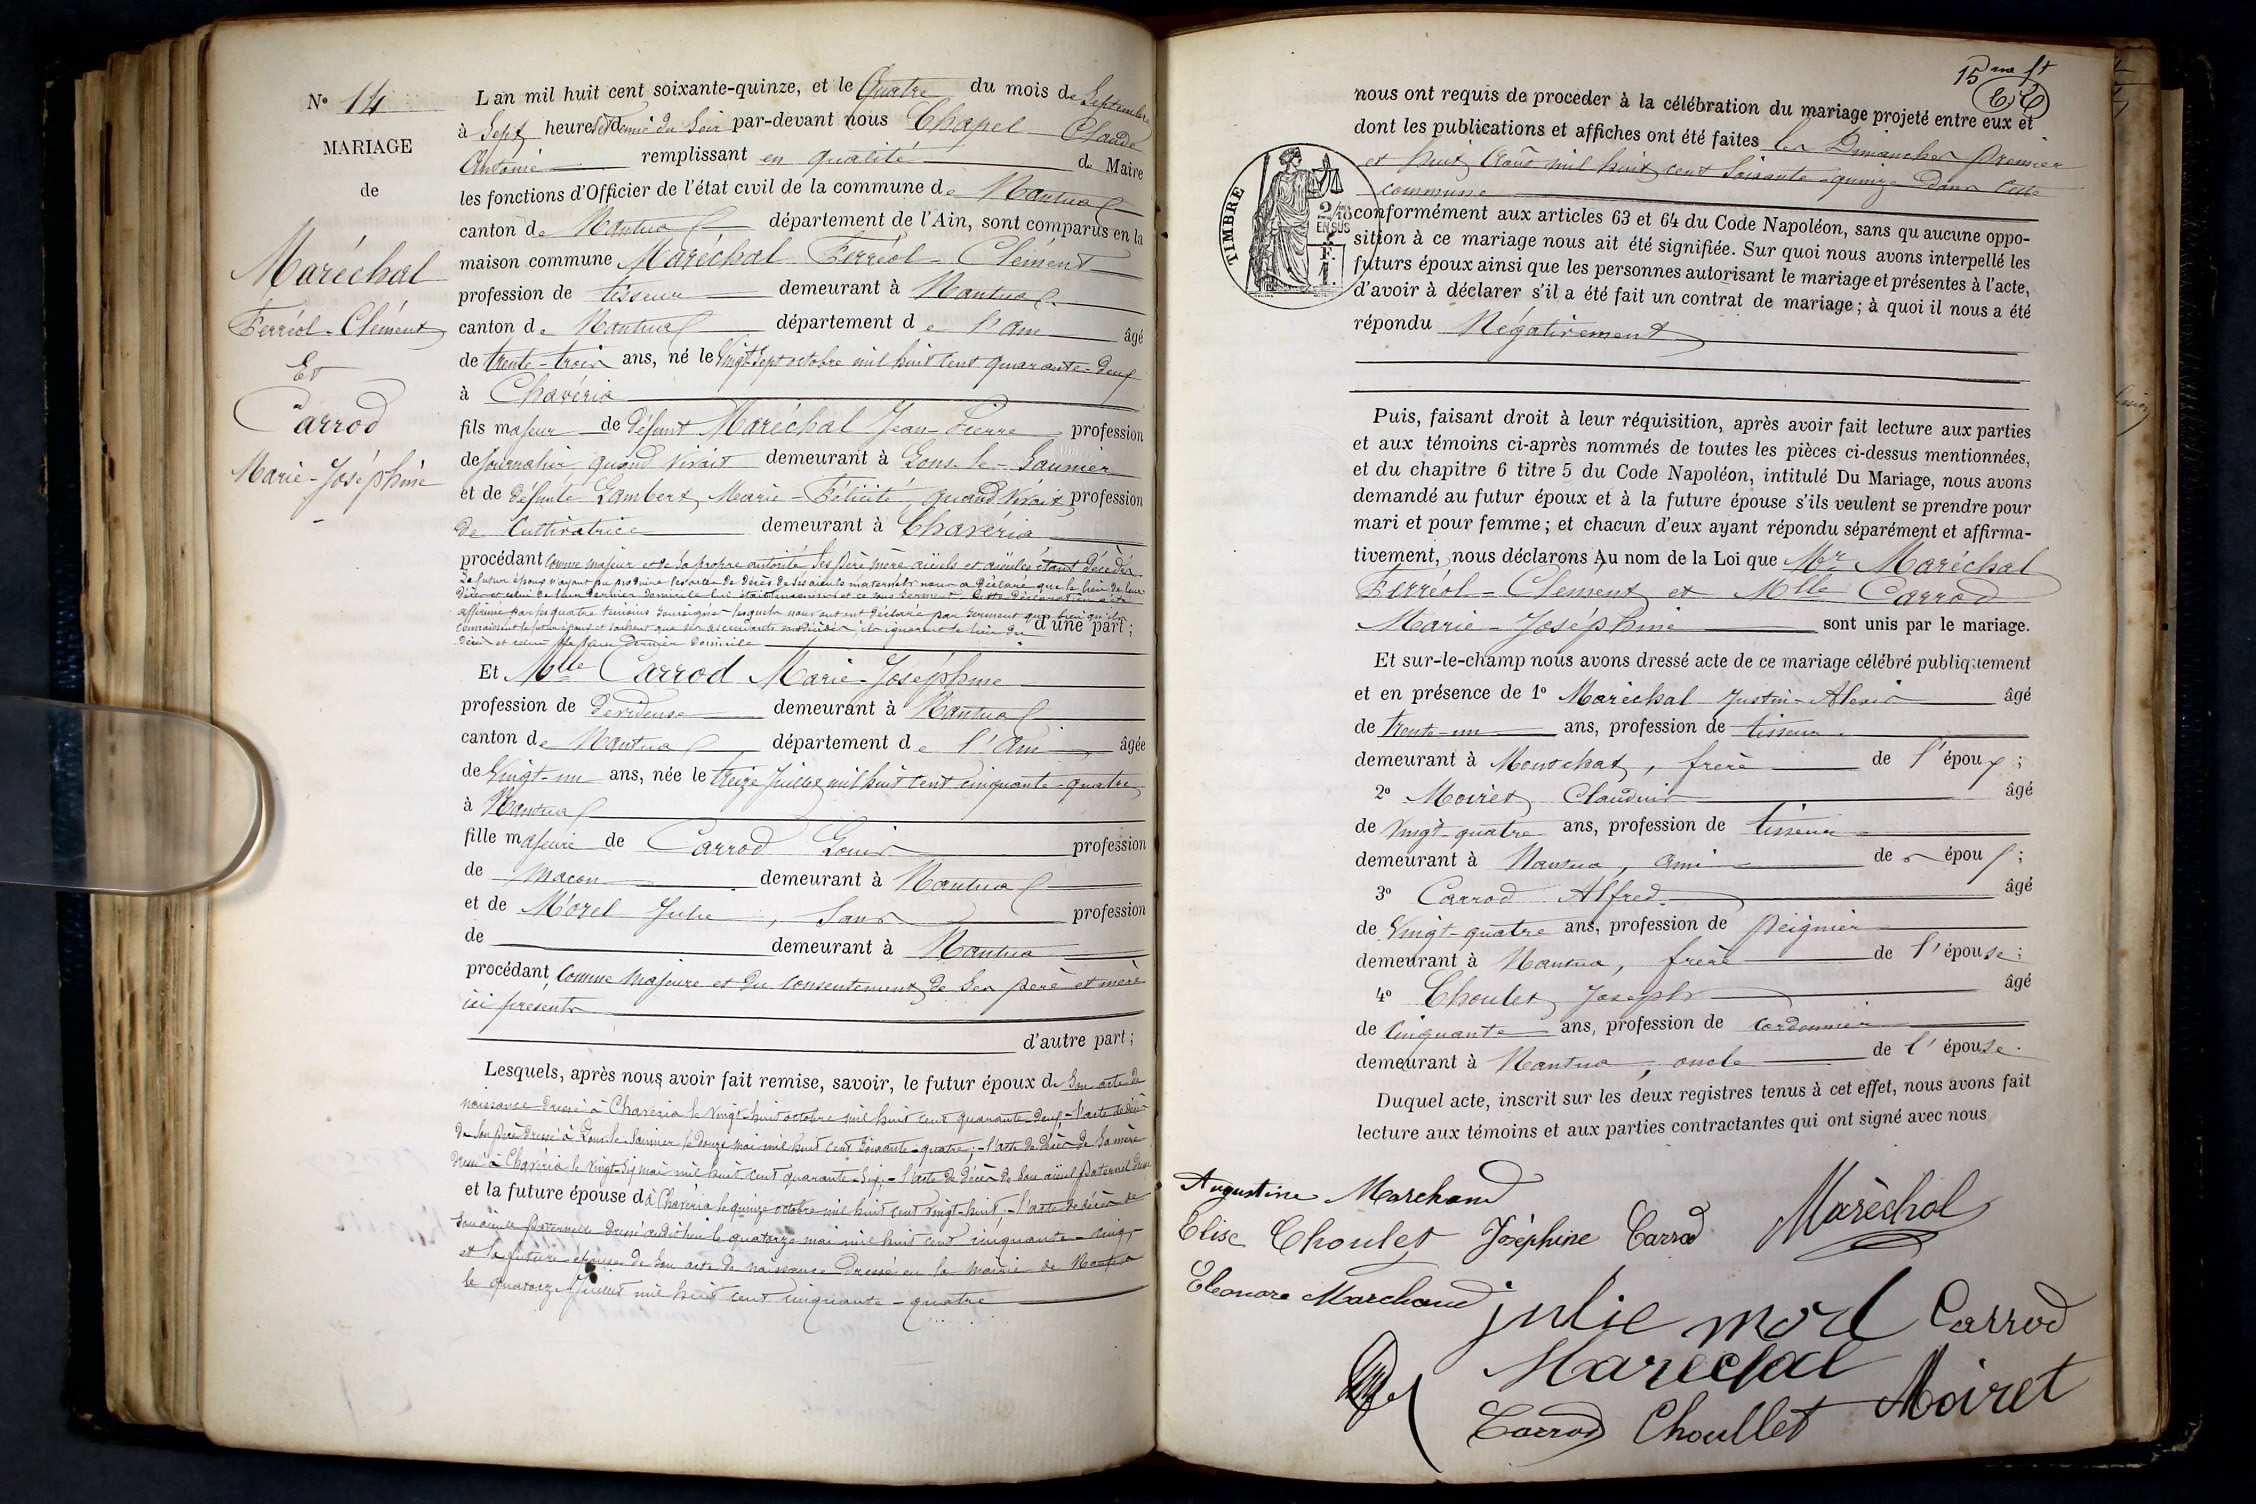 N° 14
MARIAGE
de
Maréchal
Ferréol-Clément
Et
Carrod
Marie-Joséphine
L'an mil huit cent soixante-quinze, et le Quatre du mois de Septembre
à Sept heures et demie du Soir par-devant nous Chapel Claude
Antoine remplissant en qualité de Maire
les fonctions d'Officier de l'état civil de la commune de Nantua
canton de Nantua département de l'Ain, sont comparus en la
maison commune Maréchal Ferréol-Clément
profession de tisseur demeurant à Nantua
canton de Nantua département de l'Ain âgé
de trente-trois ans, né le Vingt-Sept octobre mil huit cent quarante-deux
à Chavéria
fils majeur de défunt Maréchal Jean-Pierre profession
de journalier, quand vivait demeurant à Lons-le-Saunier
et de défunte Lambert Marie-Félicité quand vivait profession
de Cultivatrice demeurant à Chaveria
procédant comme majeur et de sa propre autorité ses père mère aïeuls et aïeules étant décédés
Le futur époux n'ayant pu produire les actes de décès de ses aïeuls maternels nous a déclaré que le lieu de leur
décès et celui de leur dernier domicile lui étaient inconnus et ce sous serment. Cette déclaration a été
affirmée par les quatre témoins soussignés lesquels nous ont déclaré par serment que bien qu'ils
connaissent le futur époux et sachent que ses ascendants sont décédés, ils ignorent le lieu du d'une part;
décès et celui de leur dernier domicile
Et Mlle Carrod Marie-Joséphine
profession de dévideuse demeurant à Nantua
canton de Nantua département de l'Ain, âgée
de Vingt-un ans, née le treize Juillet mil huit cent cinquante-quatre
à Nantua
fille majeure de Carrod Louis profession
de Macon demeurant à Nantua
et de Morel Julie, Sans profession
de demeurant à Nantua
procédant Comme Majeure et du consentement de Ses père et mère
ici présents
d'autre part;
Lesquels, après nous avoir fait remise, savoir, le futur époux de Son acte de
naissance dressé à Chavéria le vingt-huit octobre mil huit cent quarante-deux, - l'acte de décès
de Son père dressé à Lons-le-Saunier le douze mai mil huit cent soixante-quatre; - l'acte de décès de Sa mère
dressé à Chavéria le vingt-six mai mil huit cent quarante-six, - l'acte de décès de Son aïeul paternel dressé
et la future épouse d à Chavéria le quinze octobre mil huit cent vingt-huit, - l'acte de décès de
Son aïeule paternelle dressé audit lieu le quatorze mai mil huit cent cinquante-cinq,
et la future épouse de Son acte de naissance dressé en la Mairie de Nantua
le quatorze Juillet mil huit cent cinquante-quatre
15
nous ont requis de procéder à la célébration du mariage projeté entre eux et
dont les publications et affiches ont été faites les Dimanches premier
et huit Août mil huit cent Soixante-quinze dans cette
commune
TIMBRE
2/10 EN SUS
F.
conformément aux articles 63 et 64 du Code Napoléon, sans qu'aucune oppo-
sition à ce mariage nous ait été signifiée. Sur quoi nous avons interpellé les
futurs époux ainsi que les personnes autorisant le mariage et présentes à l'acte,
d'avoir à déclarer s'il a été fait un contrat de mariage; à quoi il nous a été
répondu Négativement
Puis, faisant droit à leur réquisition, après avoir fait lecture aux parties
et aux témoins ci-après nommés de toutes les pièces ci-dessus mentionnées,
et du chapitre 6 titre 5 du Code Napoléon, intitulé Du Mariage, nous avons
demandé au futur époux et à la future épouse s'ils veulent se prendre pour
mari et pour femme; et chacun d'eux ayant répondu séparément et affirma-
tivement, nous déclarons Au nom de la Loi que Mr Maréchal
Ferréol-Clement et Mlle Carrod
Marie-Joséphine sont unis par le mariage.
Et sur-le-champ nous avons dressé acte de ce mariage célébré publiquement
et en présence de 1° Maréchal Justin-Alexis âgé
de trente-un ans, profession de tisseur
demeurant à Montchat, frère de l'époux;
2° Moiret Claudius âgé
de Vingt-quatre ans, profession de tisseur
demeurant à Nantua, ami des époux;
3° Carrod Alfred âgé
de Vingt-quatre ans, profession de peignier
demeurant à Nantua, frère de l'épouse;
4° Choulet Joseph âgé
de Cinquante ans, profession de cordonnier
demeurant à Nantua, oncle de l'épouse.
Duquel acte, inscrit sur les deux registres tenus à cet effet, nous avons fait
lecture aux témoins et aux parties contractantes qui ont signé avec nous
Augustine Marchand
Elise Choulet Joséphine Carrod Maréchal
Eléonore Marchand julie morel Carrod
Marechal
Carrod Choullet Moiret